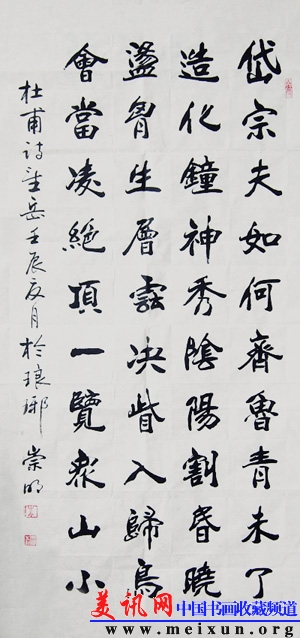 岱宗夫如何齊魯青未了
造化鐘神秀陰陽割昏曉
盪胷生層雲决眥入歸鳥
會當凌絕頂一覽衆山小
杜甫诗望岳壬辰夏月於琅琊崇明
美讯网 中国书画收藏频道
www.meixun.org